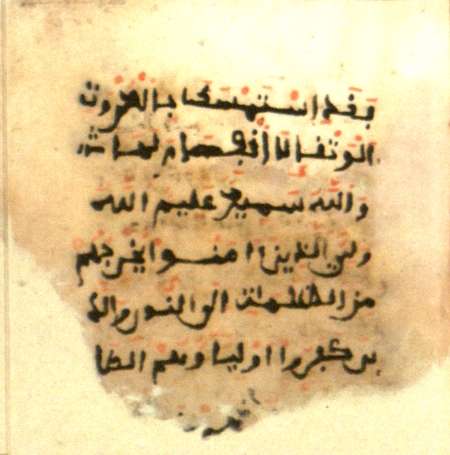 فقد استمسك بالعروت
الوثقا لا انفصام لها
والله سميع عليم الله
ولي الذين امنوا يخرجهم
من الظلمات الى النور والذ
ين كفروا اولياوهم الطا